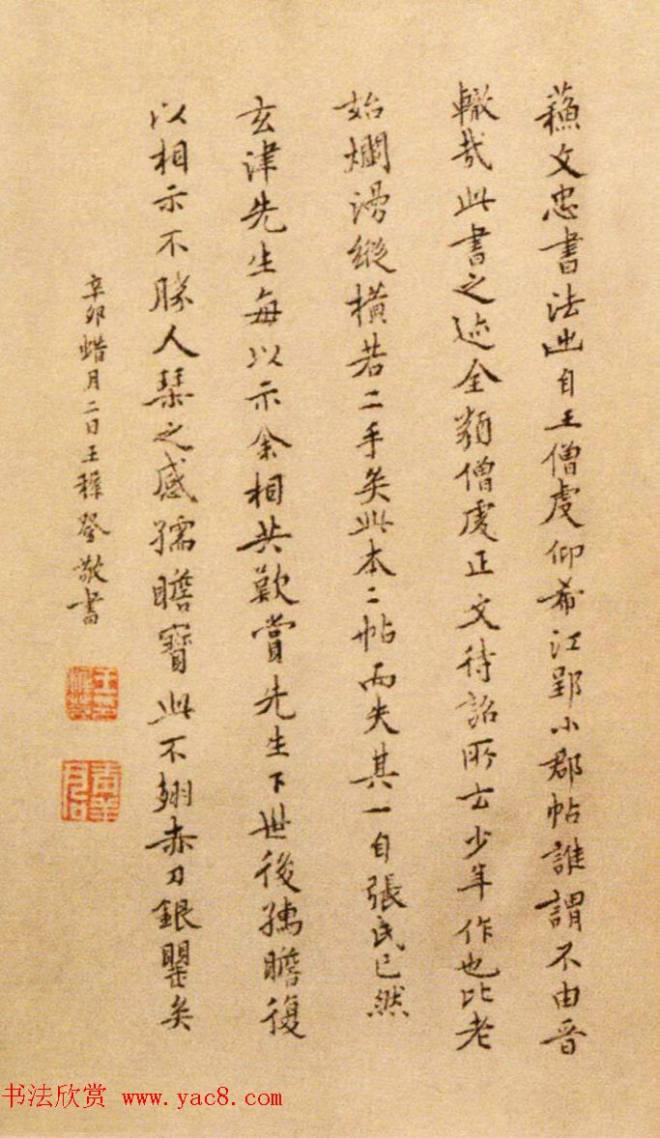 蘓文忠書法迆自王僧虔仰希江郢小郡帖誰謂不由晉
轍哉此書之迹全類僧虔正文待詔所云少年作也比老
始爛漫縱橫若二手矣此本二帖而失其一自張氏已然
玄津先生每以示余相共歎賞先生下世後孺瞻復
以相示不勝人琹之感孺瞻寶此不翅赤刀銀罌矣
辛卯蜡月二日王穉登敬書
书法欣赏 www.yac8.com